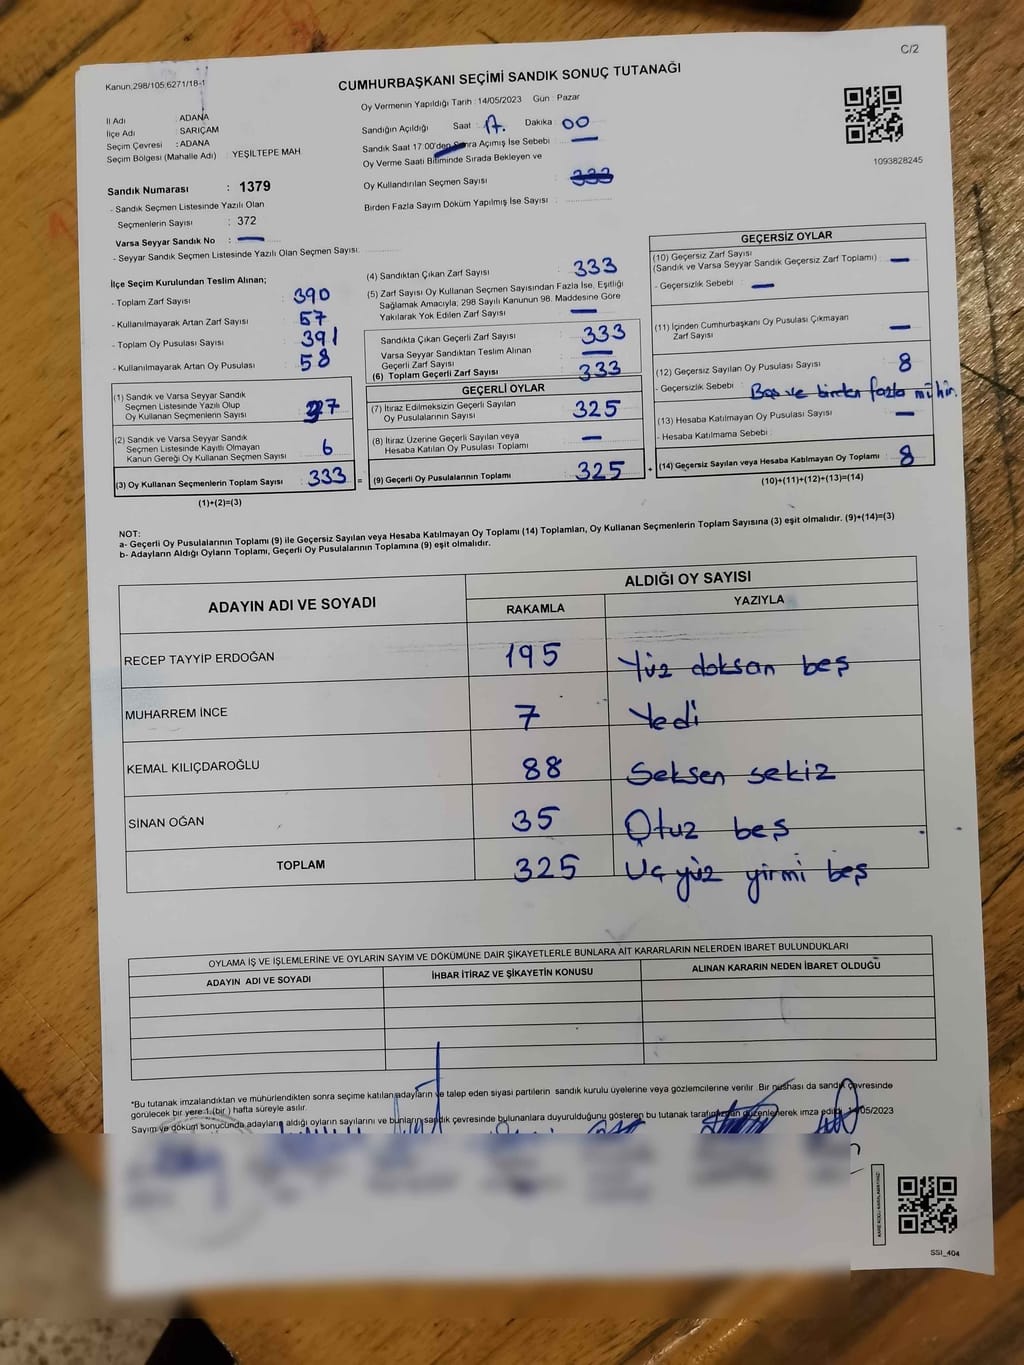 C/2
Kanun,298/105;6271/18-1
CUMHURBAŞKANI SEÇİMİ SANDIK SONUÇ TUTANAĞI
Oy Vermenin Yapıldığı Tarih : 14/05/2023 Gün : Pazar
İl Adı : ADANA
İlçe Adı : SARIÇAM
Seçim Çevresi : ADANA
Seçim Bölgesi (Mahalle Adı) : YEŞİLTEPE MAH
Sandığın Açıldığı Saat : 17. Dakika : 00
Sandık Saat 17:00'den Sonra Açımış İse Sebebi : —
Oy Verme Saati Bitiminde Sırada Bekleyen ve
Oy Kullandırılan Seçmen Sayısı : 333
Birden Fazla Sayım Döküm Yapılmış İse Sayısı :
1093828245
Sandık Numarası : 1379
- Sandık Seçmen Listesinde Yazılı Olan
Seçmenlerin Sayısı : 372
Varsa Seyyar Sandık No : —
- Seyyar Sandık Seçmen Listesinde Yazılı Olan Seçmen Sayısı:
İlçe Seçim Kurulundan Teslim Alınan;
- Toplam Zarf Sayısı : 390
- Kullanılmayarak Artan Zarf Sayısı : 57
- Toplam Oy Pusulası Sayısı : 391
- Kullanılmayarak Artan Oy Pusulası : 58
(1) Sandık ve Varsa Seyyar Sandık
Seçmen Listesinde Yazılı Olup
Oy Kullanan Seçmenlerin Sayısı :
(2) Sandık ve Varsa Seyyar Sandık
Seçmen Listesinde Kayıtlı Olmayan
Kanun Gereği Oy Kullanan Seçmen Sayısı : 6
(3) Oy Kullanan Seçmenlerin Toplam Sayısı : 333 =
(1)+(2)=(3)
(4) Sandıktan Çıkan Zarf Sayısı : 333
(5) Zarf Sayısı Oy Kullanan Seçmen Sayısından Fazla İse, Eşitliği
Sağlamak Amacıyla; 298 Sayılı Kanunun 98. Maddesine Göre
Yakılarak Yok Edilen Zarf Sayısı : —
Sandıkta Çıkan Geçerli Zarf Sayısı : 333
Varsa Seyyar Sandıktan Teslim Alınan
Geçerli Zarf Sayısı : —
(6) Toplam Geçerli Zarf Sayısı : 333
GEÇERLİ OYLAR
(7) İtiraz Edilmeksizin Geçerli Sayılan
Oy Pusulalarının Sayısı : 325
(8) İtiraz Üzerine Geçerli Sayılan veya
Hesaba Katılan Oy Pusulası Toplamı : —
(9) Geçerli Oy Pusulalarının Toplamı : 325 +
GEÇERSİZ OYLAR
(10) Geçersiz Zarf Sayısı
(Sandık ve Varsa Seyyar Sandık Geçersiz Zarf Toplamı) : —
- Geçersizlik Sebebi : —
(11) İçinden Cumhurbaşkanı Oy Pusulası Çıkmayan
Zarf Sayısı : —
(12) Geçersiz Sayılan Oy Pusulası Sayısı : 8
- Geçersizlik Sebebi : Boş ve birden fazla mühür.
(13) Hesaba Katılmayan Oy Pusulası Sayısı : —
- Hesaba Katılmama Sebebi :
(14) Geçersiz Sayılan veya Hesaba Katılmayan Oy Toplamı : 8
(10)+(11)+(12)+(13)=(14)
NOT:
a- Geçerli Oy Pusulalarının Toplamı (9) ile Geçersiz Sayılan veya Hesaba Katılmayan Oy Toplamı (14) Toplamları, Oy Kullanan Seçmenlerin Toplam Sayısına (3) eşit olmalıdır. (9)+(14)=(3)
b- Adayların Aldığı Oyların Toplamı, Geçerli Oy Pusulalarının Toplamına (9) eşit olmalıdır.
ADAYIN ADI VE SOYADI
ALDIĞI OY SAYISI
RAKAMLA YAZIYLA
RECEP TAYYİP ERDOĞAN 195 Yüz doksan beş
MUHARREM İNCE 7 Yedi
KEMAL KILIÇDAROĞLU 88 Seksen sekiz
SİNAN OĞAN 35 Otuz beş
TOPLAM 325 Üç yüz yirmi beş
OYLAMA İŞ VE İŞLEMLERİNE VE OYLARIN SAYIM VE DÖKÜMÜNE DAİR ŞİKAYETLERLE BUNLARA AİT KARARLARIN NELERDEN İBARET BULUNDUKLARI
ADAYIN ADI VE SOYADI İHBAR İTİRAZ VE ŞİKAYETİN KONUSU ALINAN KARARIN NEDEN İBARET OLDUĞU
*Bu tutanak imzalandıktan ve mühürlendikten sonra seçime katılan adayların ve talep eden siyasi partilerin sandık kurulu üyelerine veya gözlemcilerine verilir. Bir nüshası da sandık çevresinde
görülecek bir yere 1 (bir ) hafta süreyle asılır.
Sayım ve döküm sonucunda adayların aldığı oyların sayılarını ve bunların sandık çevresinde bulunanlara duyurulduğunu gösteren bu tutanak tarafımızdan düzenlenerek imza edildi. 14/05/2023
SSI_404